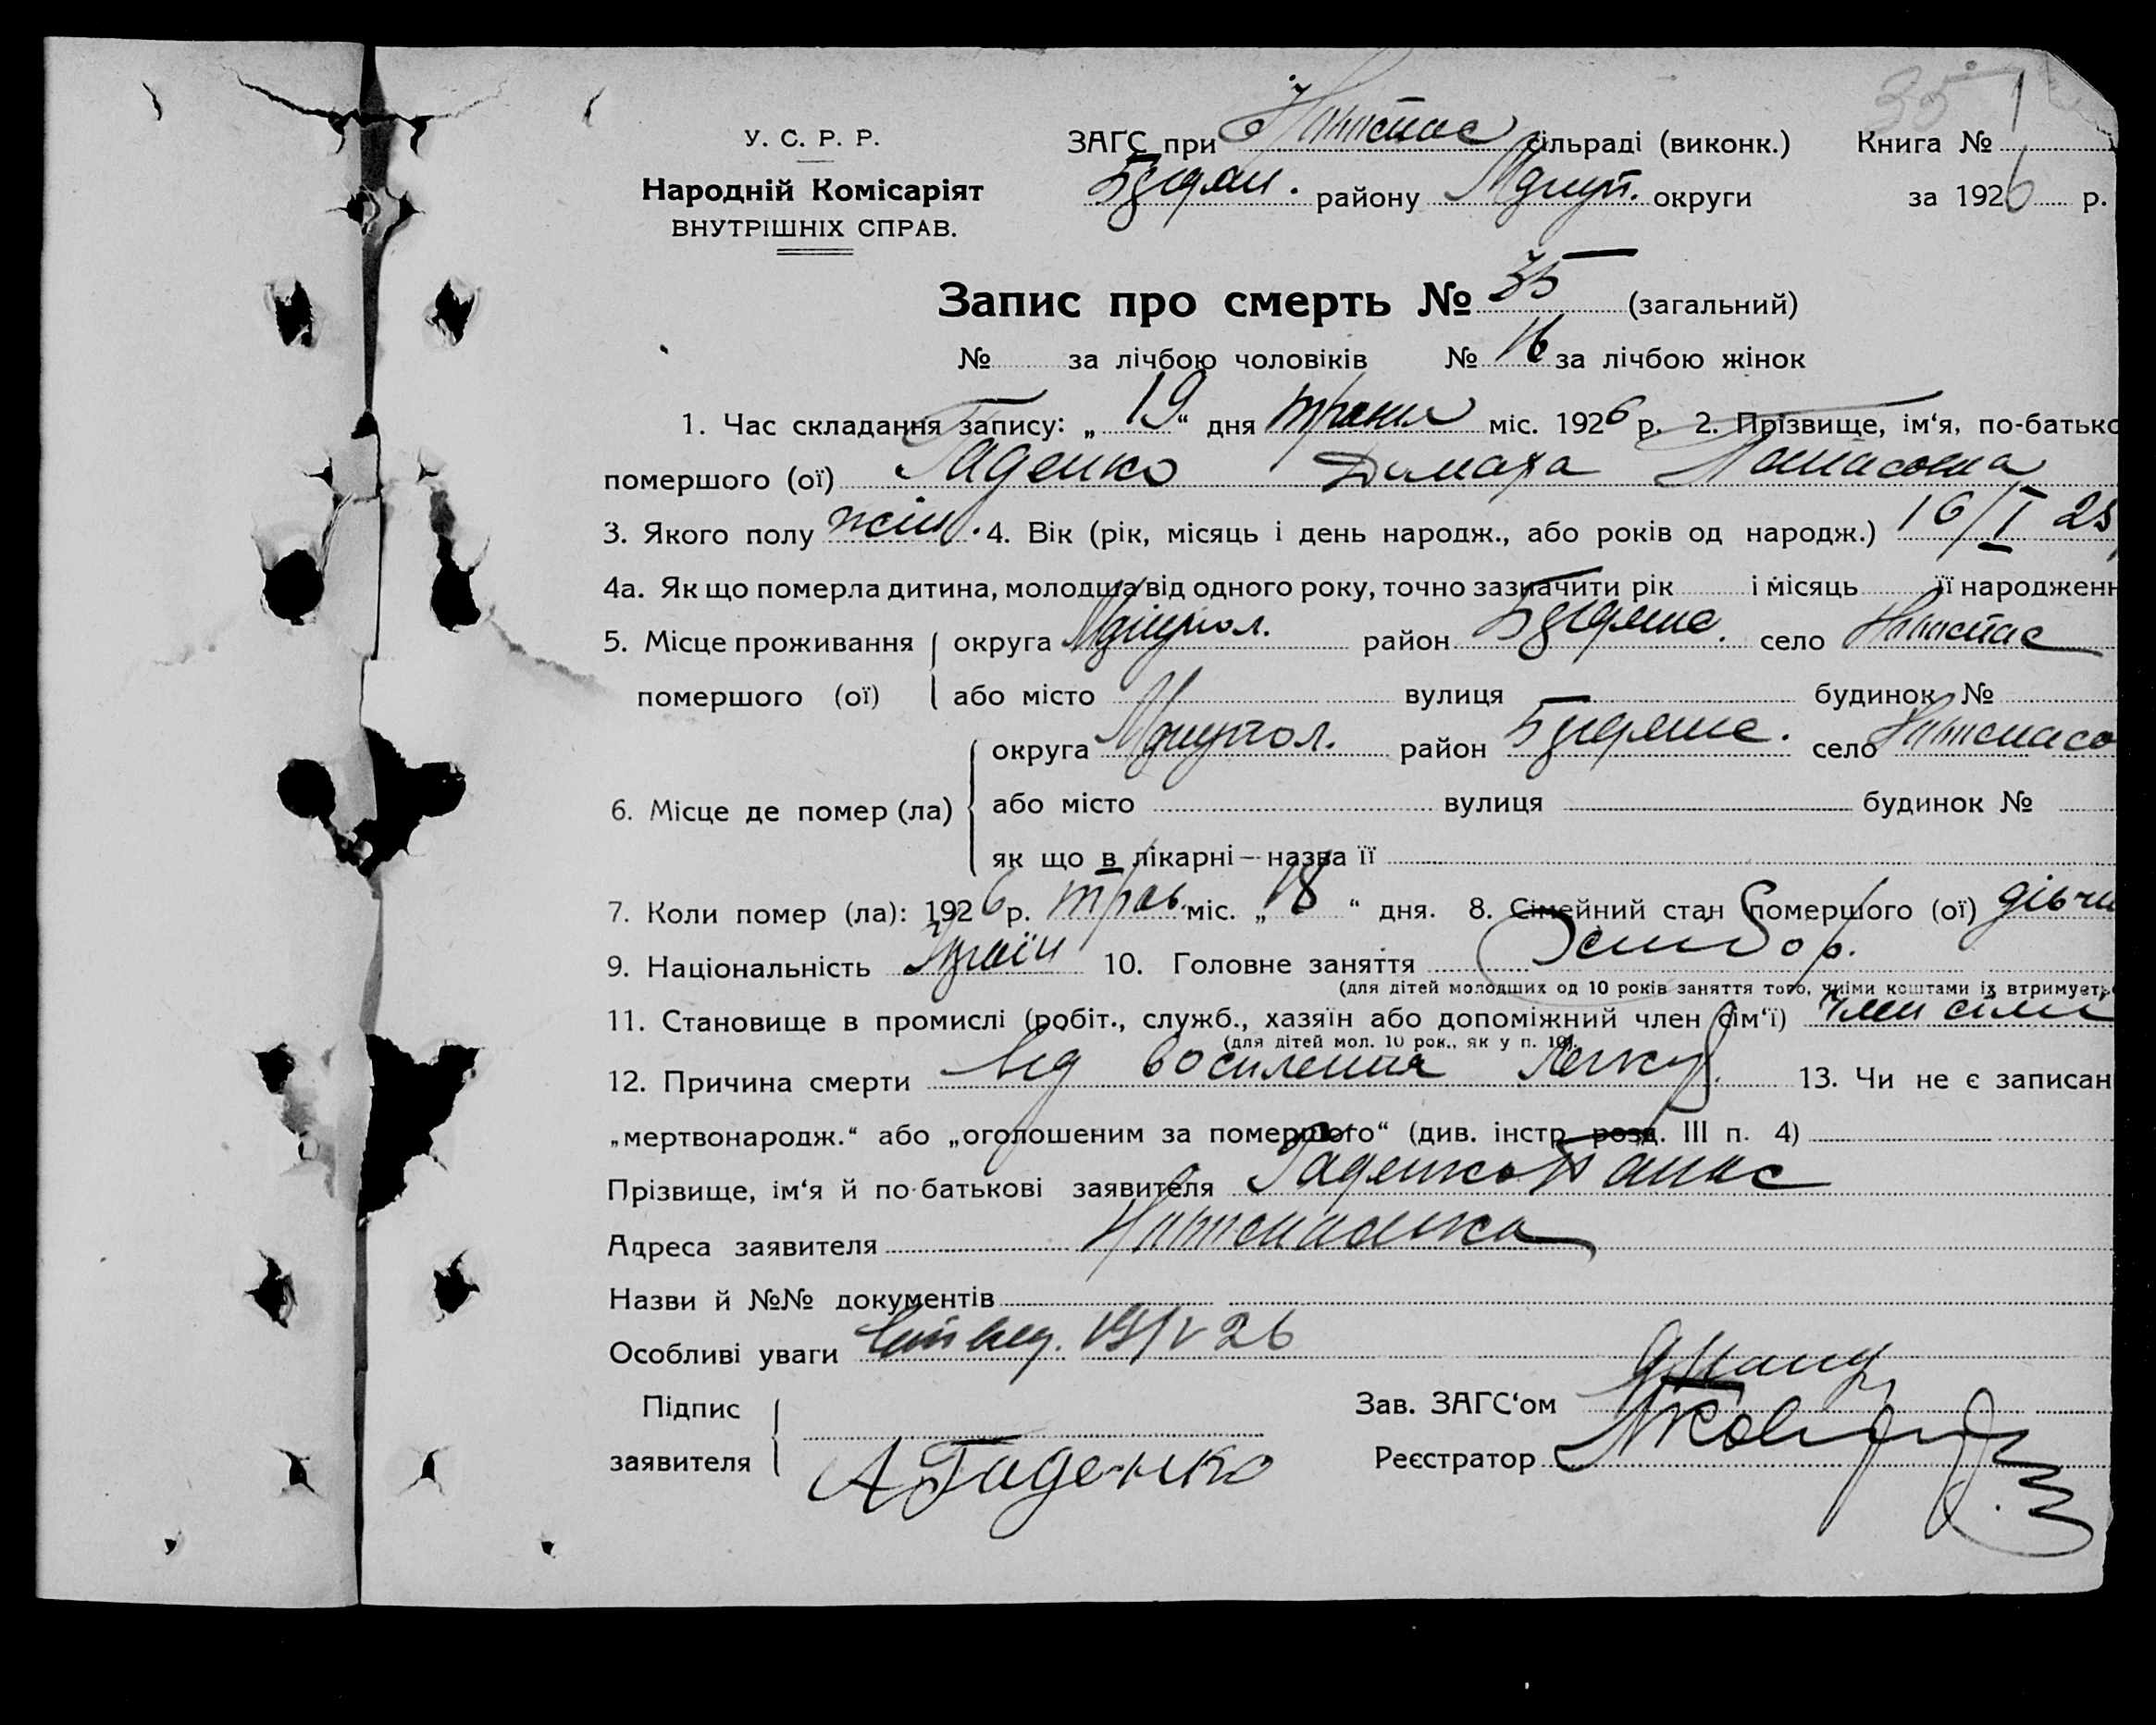 35
У. С. Р. Р.
Народній Комісаріят
ВНУТРІШНІХ СПРАВ.
ЗАГС при сільраді (виконк.) Книга № 1
району Маріуп. округи за 1926 р.
Запис про смерть № 35 (загальний)
№ за лічбою чоловіків № 16 за лічбою жінок
1. Час складання запису: „ 19 “ дня травня міс. 1926 р. 2. Прізвище, ім‘я, по-батько
помершого (ої) Гаденко Домаха Панасовна
3. Якого полу жін. 4. Вік (рік, місяць і день народж., або років од народж.) 16/I 25
4а. Як що померла дитина, молодша від одного року, точно зазначити рік і місяць її народженн
5. Місце проживання округа Маріупол. район село
помершого (ої) або місто вулиця будинок №
округа Маріупол. район село
6. Місце де помер (ла) або місто вулиця будинок №
як що в лікарні — назва її
7. Коли помер (ла): 1926 р. трав. міс. „ 18 “ дня. 8. Сімейний стан помершого (ої) дівчи
9. Національність Україн 10. Головне заняття Хлибор.
(для дітей молодших од 10 років заняття того, чиїми коштами їх втримуеть
11. Становище в промислі (робіт., служб., хазяїн або допоміжний член сім‘ї) член сімї
(для дітей мол. 10 рок., як у п. 10).
12. Причина смерти Від восполения легких. 13. Чи не є записан
„мертвонародж.“ або „оголошеним за помершого“ (див. інстр. розд. III п. 4)
Прізвище, ім‘я й по-батькові заявителя Гаденко Панас
Адреса заявителя
Назви й №№ документів
Особливі уваги 19/V 26
Підпис Зав. ЗАГС‘ом
заявителя А Гаденко Реєстратор